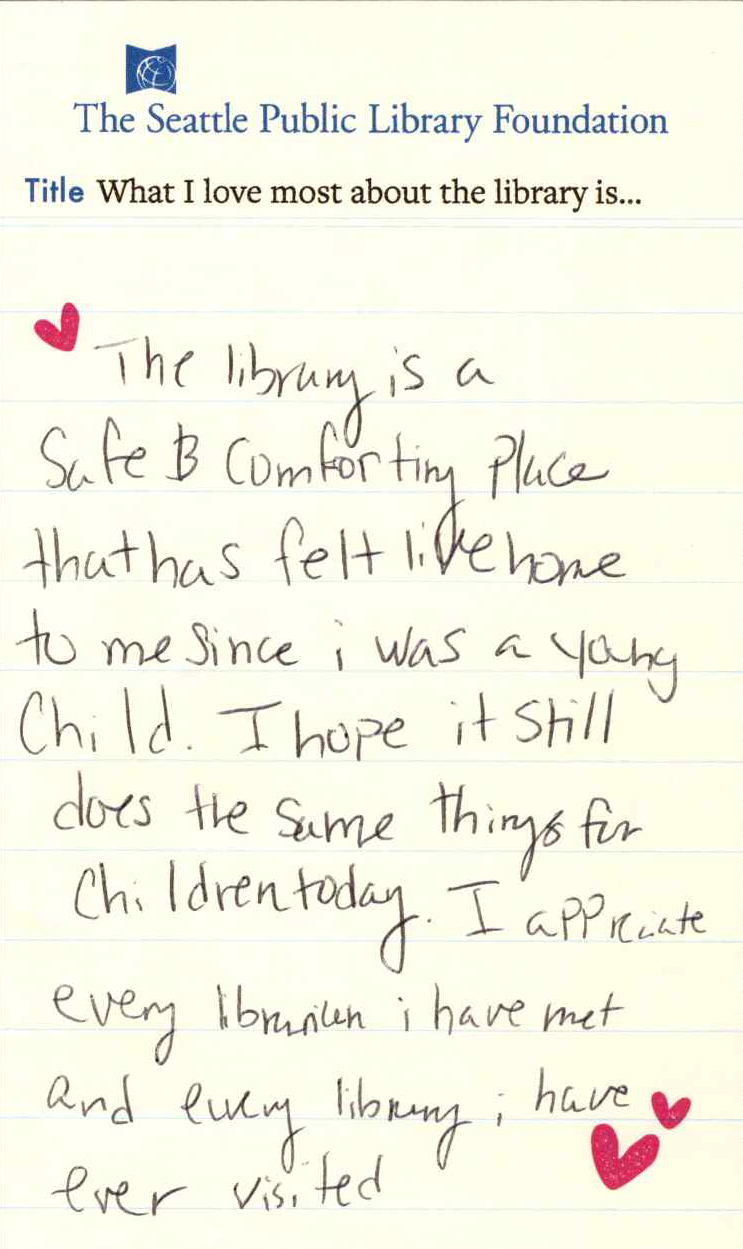 The Seattle Public Library Foundation
Title What I love most about the library is...
The library is a
Safe & Comforting Place
that has felt like home
to me since i was a young
Child. I hope it still
does the same things for
Children today. I appriciate
every librarian i have met
and every library i have
ever visited